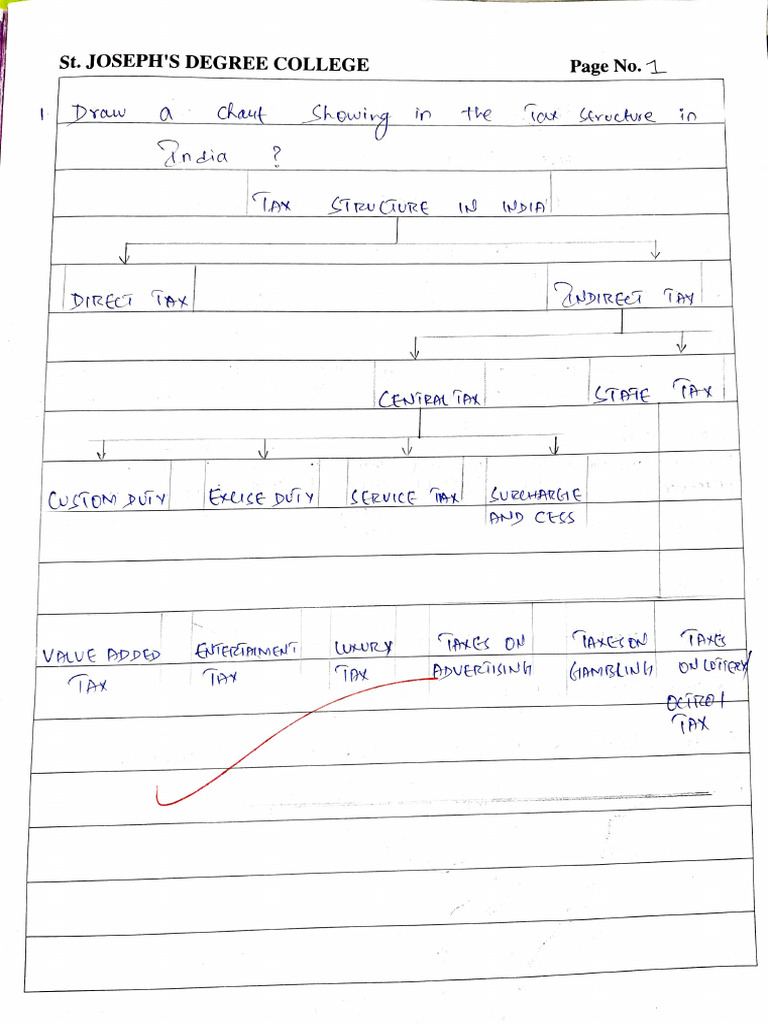 St. JOSEPH'S DEGREE COLLEGE Page No. 1
1 Draw a chart Showing in the Tax structure in
India ?
TAX STRUCTURE IN INDIA
DIRECT TAX INDIRECT TAX
CENTRAL TAX STATE TAX
CUSTOM DUTY EXCISE DUTY SERVICE TAX SURCHARGE
AND CESS
VALUE ADDED ENTERTAIMENT LUXURY TAXES ON TAXES ON TAXES
TAX TAX TAX ADVERTISING GAMBLING ON LOTTERY/
OCTROI
TAX